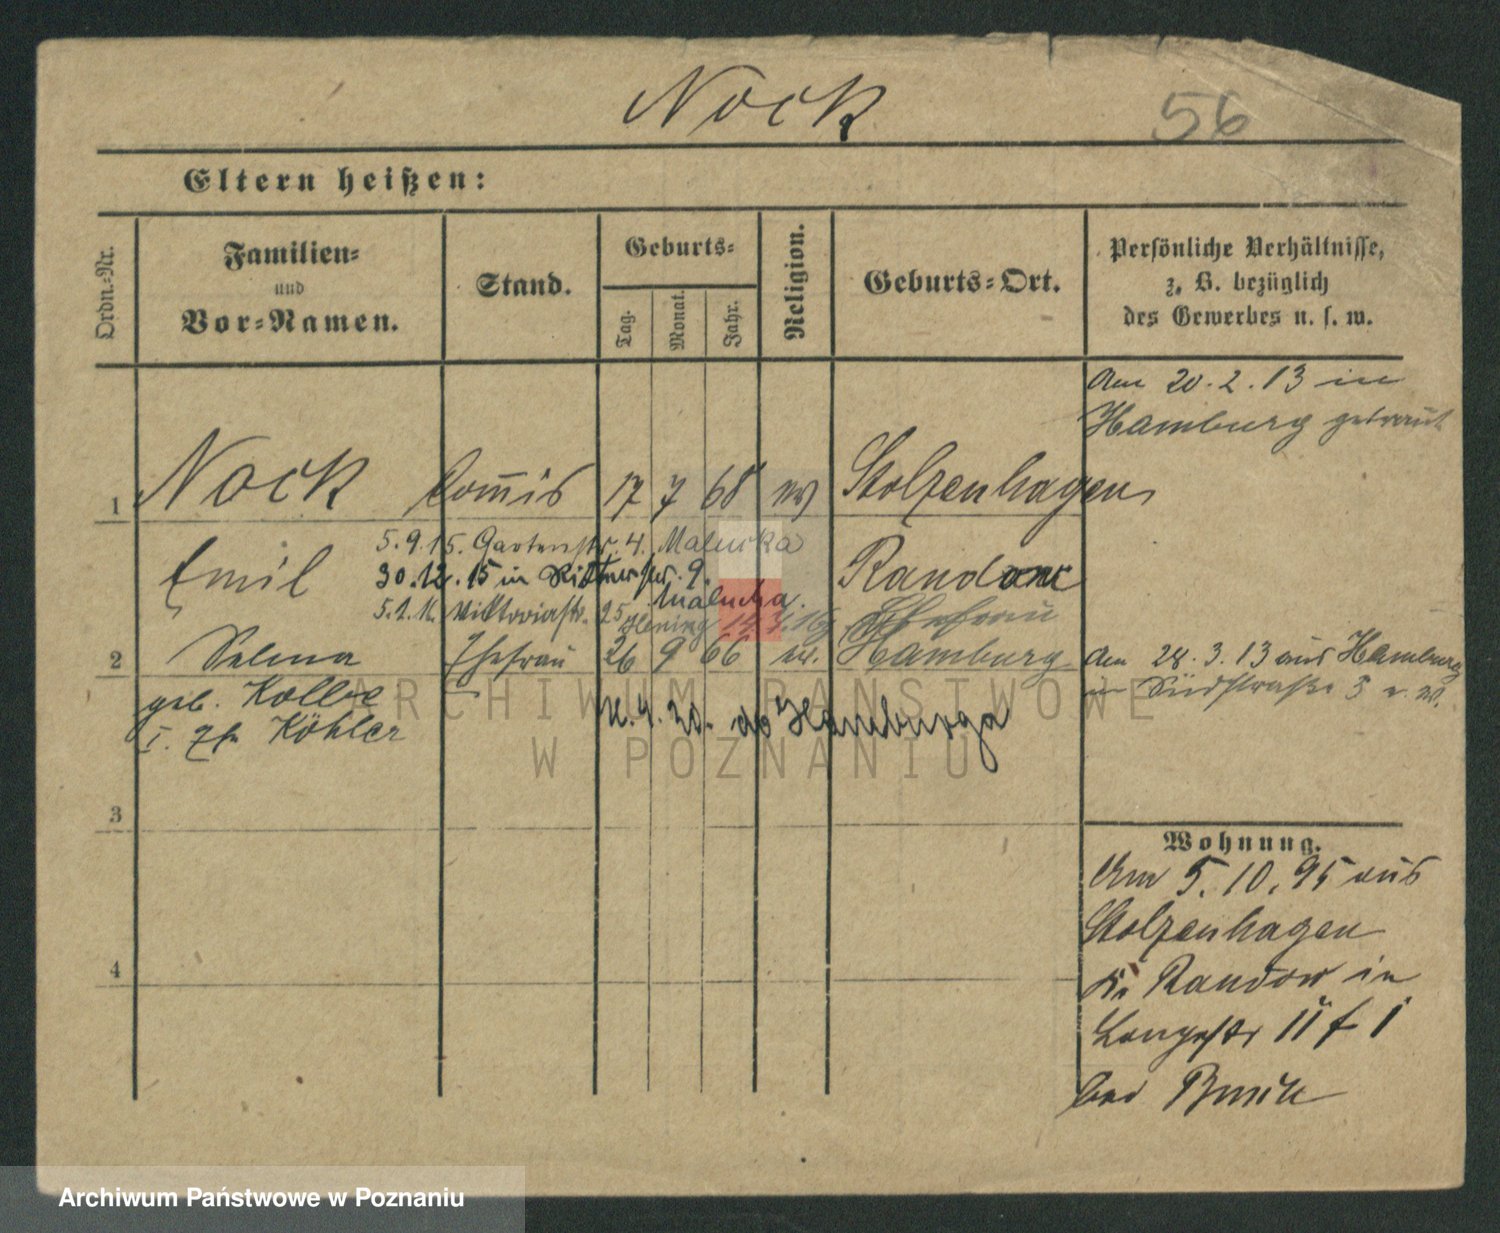 Nock
56
Eltern heißen:
Ordn.-Nr.
Familien-
und
Vor-Namen.
Stand.
Geburts-
Tag.
Monat.
Jahr.
Religion.
Geburts-Ort.
Persönliche Verhältnisse,
z. B. bezüglich
des Gewerbes u. s. w.
Am 20.2.13 in
Hamburg getraut
1 Nock Commis 17 7 68 ev Stolzenhagen
5.9.15. Gartenstr. 4. Malucka
Emil Randow
30.12.15 in Rittnerstr. 9.
Malucha.
5.1.16. Viktoriastr. 25
Ehefrau
2 Selma Ehefrau 26 9 66 ev. Hamburg
Am 28.3.13 aus Hamburg
in Südstraße 5 e. w.
geb. Kolbe
I. Köhler
4. 20. do Hamburga
3
4
Wohnung.
Am 5.10.95 aus
Stolzenhagen
Kr Randow in
Langestr 11 f I
bei
ARCHIWUM PAŃSTWOWE
W POZNANIU
Archiwum Państwowe w Poznaniu